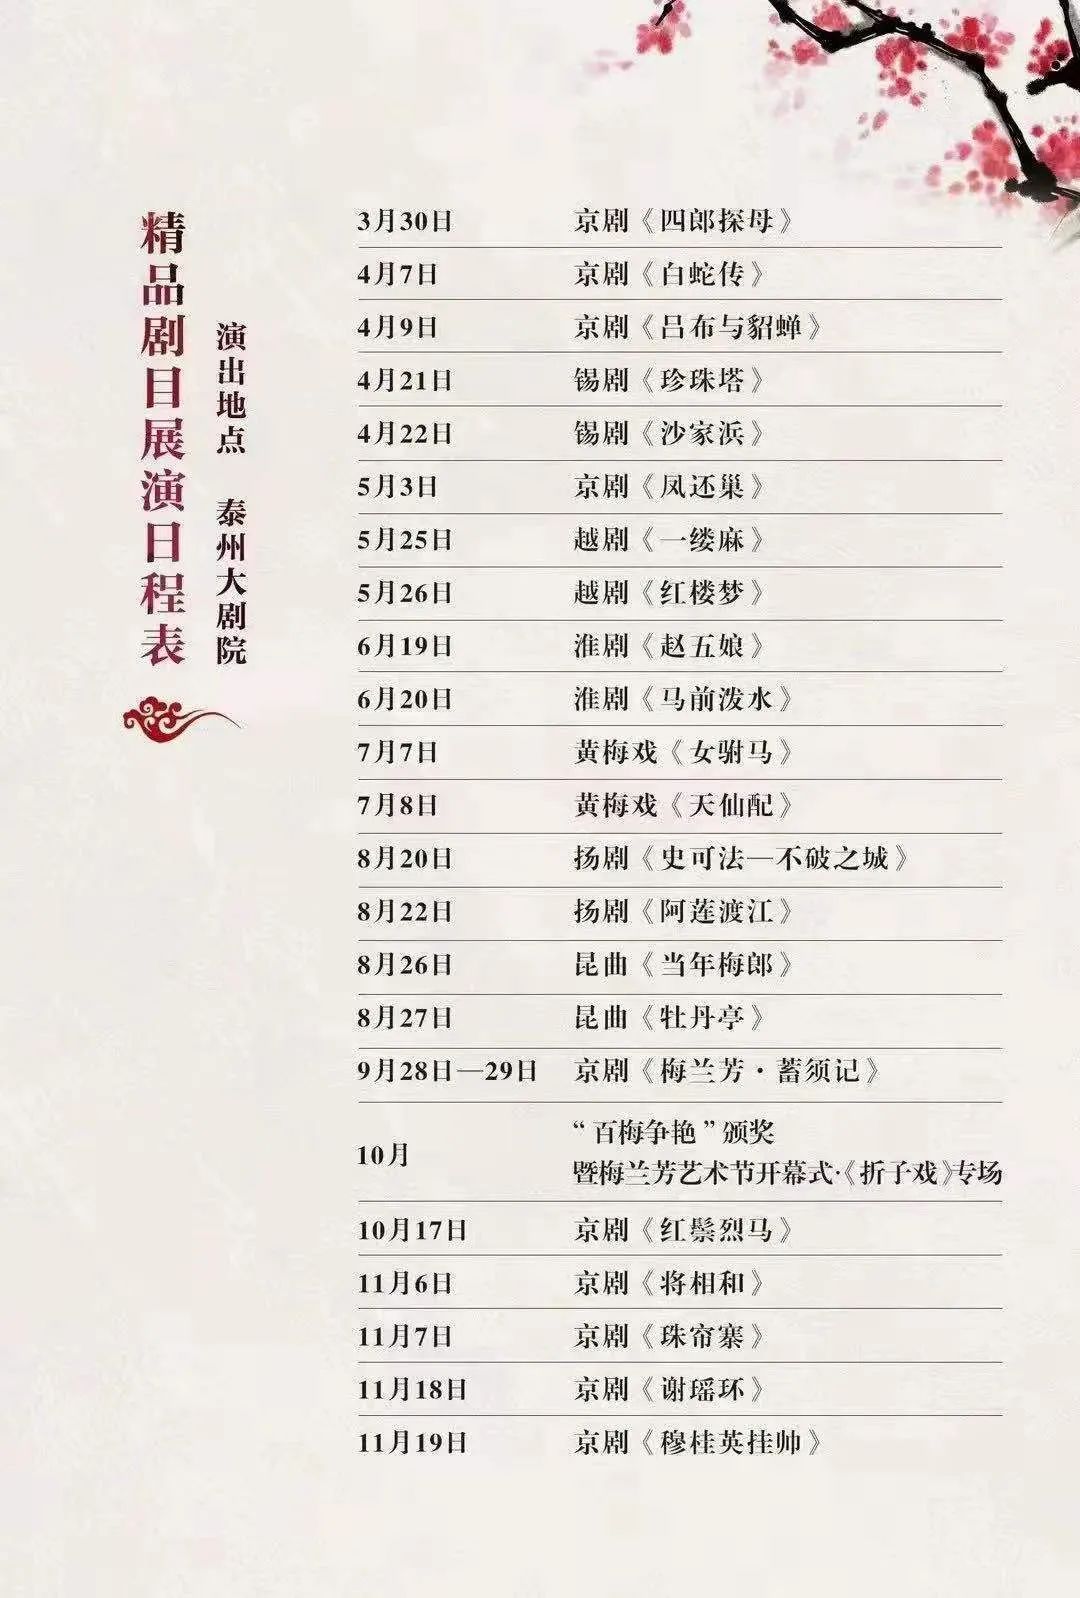 精品剧目展演日程表
演出地点 泰州大剧院
3月30日 京剧《四郎探母》
4月7日 京剧《白蛇传》
4月9日 京剧《吕布与貂蝉》
4月21日 锡剧《珍珠塔》
4月22日 锡剧《沙家浜》
5月3日 京剧《凤还巢》
5月25日 越剧《一缕麻》
5月26日 越剧《红楼梦》
6月19日 淮剧《赵五娘》
6月20日 淮剧《马前泼水》
7月7日 黄梅戏《女驸马》
7月8日 黄梅戏《天仙配》
8月20日 扬剧《史可法—不破之城》
8月22日 扬剧《阿莲渡江》
8月26日 昆曲《当年梅郎》
8月27日 昆曲《牡丹亭》
9月28日—29日 京剧《梅兰芳·蓄须记》
10月 “百梅争艳”颁奖
暨梅兰芳艺术节开幕式·《折子戏》专场
10月17日 京剧《红鬃烈马》
11月6日 京剧《将相和》
11月7日 京剧《珠帘寨》
11月18日 京剧《谢瑶环》
11月19日 京剧《穆桂英挂帅》